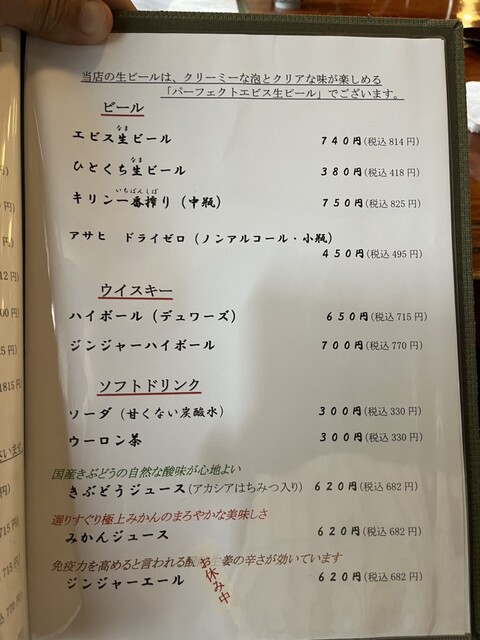 当店の生ビールは、クリーミーな泡とクリアな味が楽しめる
「パーフェクトエビス生ビール」でございます。
ビール
エビス生ビール 740円(税込814円)
なま
ひとくち生ビール 380円(税込418円)
なま
キリン一番搾り(中瓶) 750円(税込825円)
いちばんしぼ
アサヒ ドライゼロ(ノンアルコール・小瓶)
450円(税込495円)
ウイスキー
ハイボール(デュワーズ) 650円(税込715円)
ジンジャーハイボール 700円(税込770円)
ソフトドリンク
ソーダ(甘くない炭酸水) 300円(税込330円)
ウーロン茶 300円(税込330円)
国産きぶどうの自然な酸味が心地よい
きぶどうジュース(アカシアはちみつ入り) 620円(税込682円)
選りすぐり極上みかんのまろやかな美味しさ
みかんジュース 620円(税込682円)
免疫力を高めると言われる 姜の辛さが効いています
ジンジャーエール 620円(税込682円)
お休み中